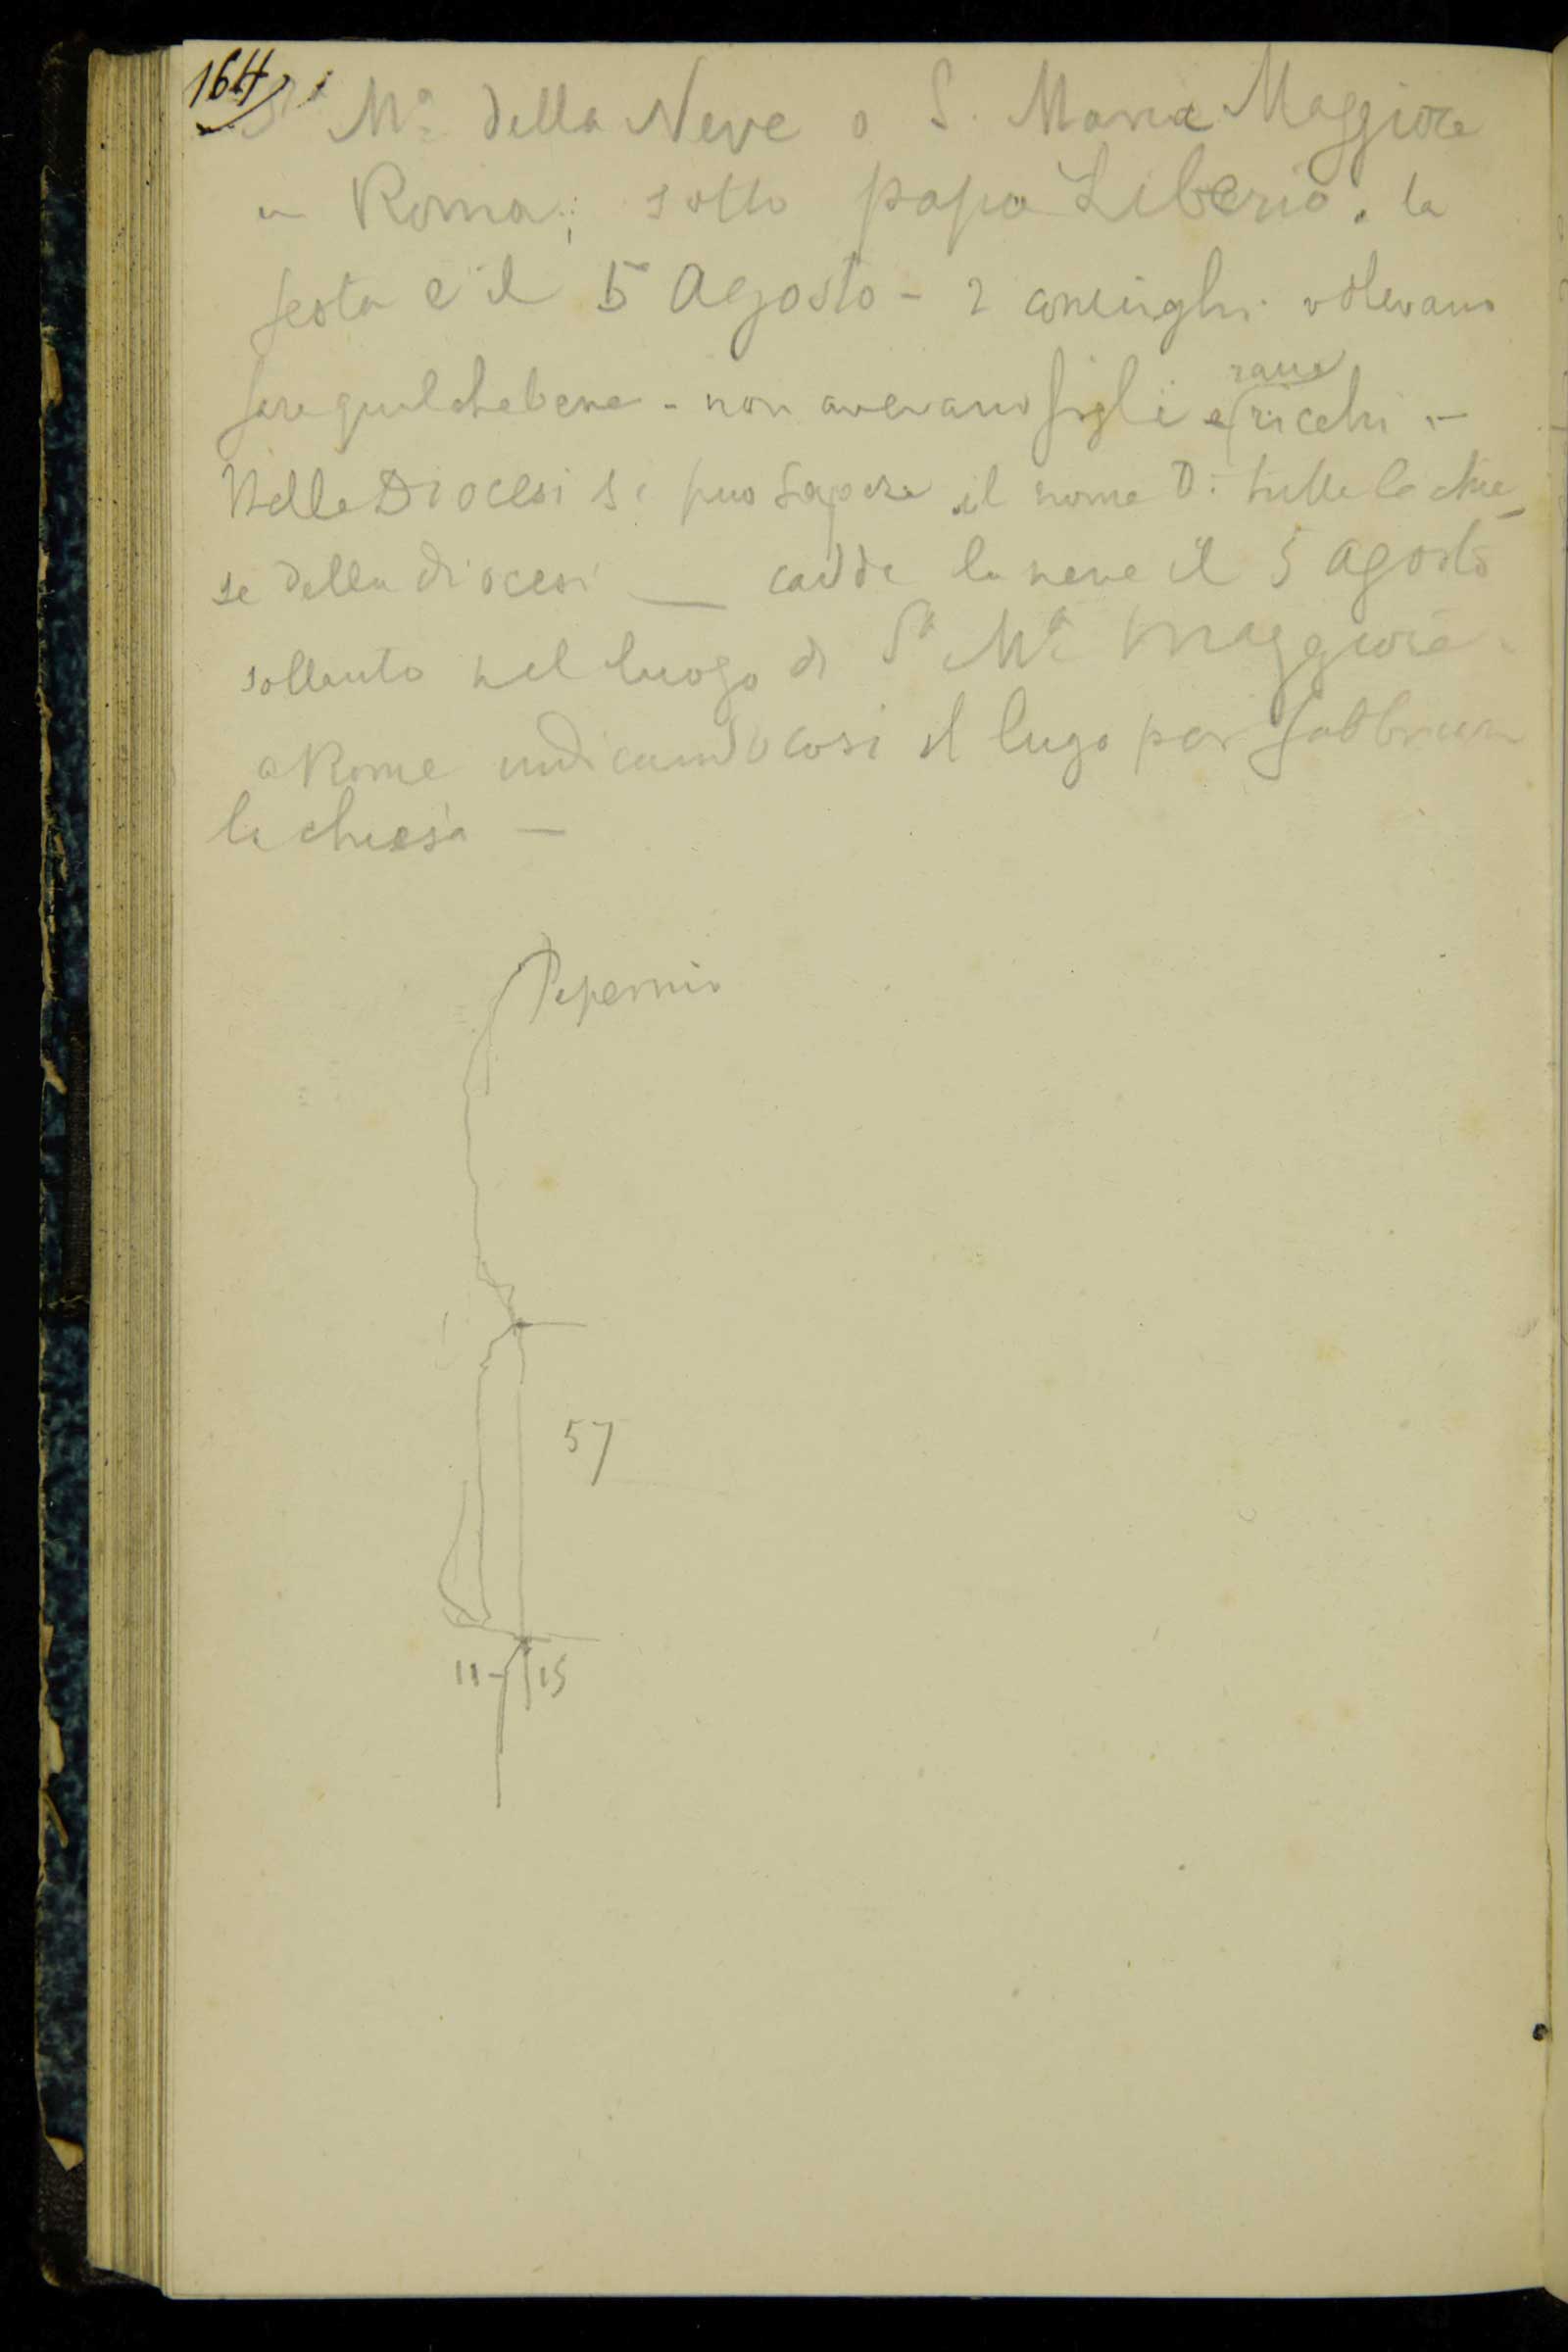 164
Sa Ma della Neve o S. Maria Maggiore
in Roma; sotto papa Liberio. la
festa e il 5 Agosto - 2 coniughi volevano
fare qualche bene - non avevano figli e rano ricchi -
Nelle Diocesi si puo sapere il nome di tutte le chie
se della diocesi — cadde la neve il 5 agosto
soltanto nel luogo di Sa Ma Maggiore
a Roma indicando cosi il lugo per fabbricar
la chiesa —
Peperino
57
11 - 15